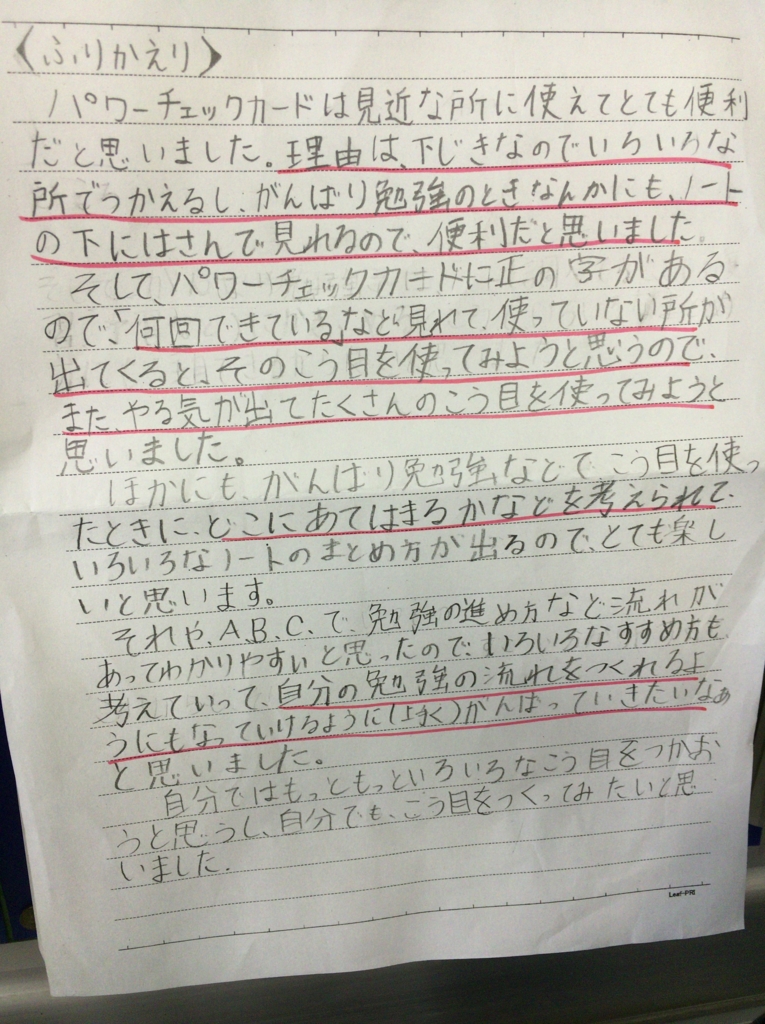 〈ふりかえり〉
パワーチェックカードは見近な所に使えてとても便利
だと思いました。理由は、下じきなのでいろいろな
所でつかえるし、がんばり勉強のときなんかにも、ノート
の下にはさんで見れるので、便利だと思いました。
そして、パワーチェックカードに正の字がある
ので、「何回できている」など見れて、使っていない所が
出てくると、そのこう目を使ってみようと思うので、
また、やる気が出てたくさんのこう目を使ってみようと
思いました。
ほかにも、がんばり勉強などで、こう目を使っ
たときに、どこにあてはまるかなどを考えられて、
いろいろなノートのまとめ方が出るので、とても楽し
いと思います。
それや、A、B、C、で、勉強の進め方など流れが
あってわかりやすいと思ったので、いろいろなすすめ方も、
考えていって、自分の勉強の流れをつくれるよ
うにもなっていけるように(上手く)がんばっていきたいなぁ
と思いました。
自分ではもっともっといろいろなこう目をつかお
うと思うし、自分でも、こう目をつくってみたいと思
いました.
Leaf-PRI